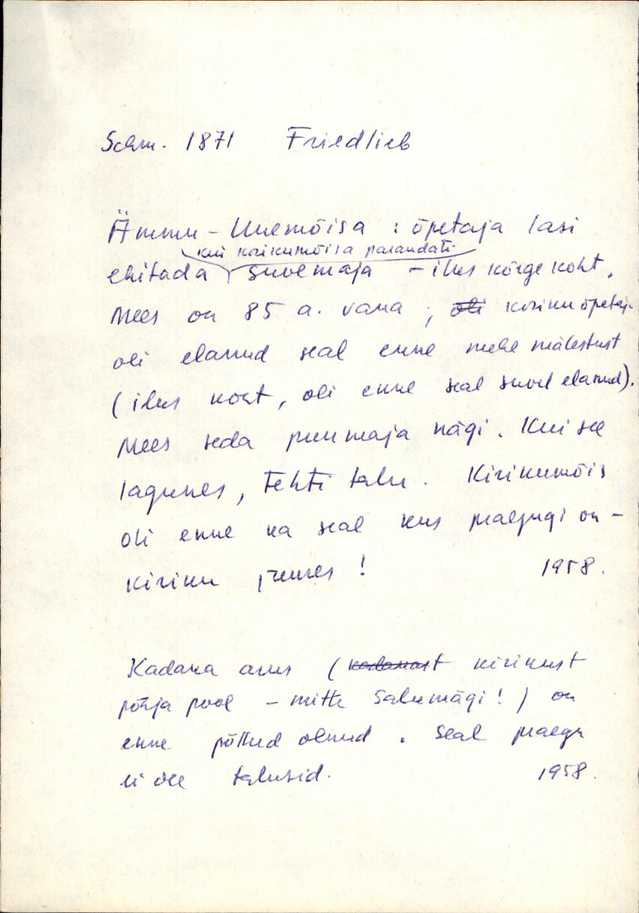 Schm. 1871 Friedlieb
Ämmu - Uuemõisa : õpetaja lasi
kui kirikumõisa parandati
ehitada suvemaja - ilus kõrge koht.
Mees on 85 a. vana ; oli kirikuõpetaja
oli elanud seal enne mehe mälestust
(ilus koht, oli enne seal suvel elanud).
Mees seda puumaja nägi. Kui see
lagunes, tehti talu. Kirikumõis
oli enne ka seal kus praegugi on -
kiriku juures ! 1958.
Kadaka arus ( kirikust
põhja pool - mitte Salumägi! ) on
enne põllud olnud. Seal praegu
ei ole talusid. 1958.